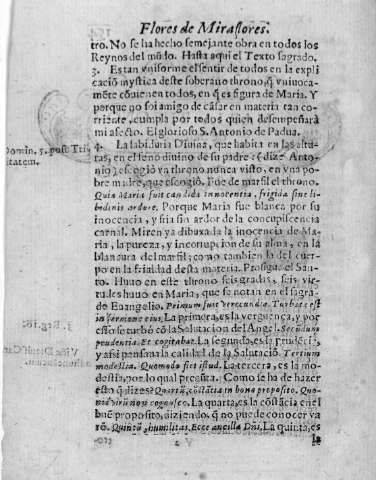 Flores de Miraflores.
tro. No se ha hecho semejante obra en todos los
Reynos del mũdo. Hasta aqui el Texto sagrado.
3. Estan vniforme el sentir de todos en la expli
caciõ mystica deste soberano throno, q̃ vniuoca-
mẽte cõuienen todos, en q̃ es figura de Maria. Y
porque no soi amigo de cãsar en materia tan co-
rriente, cumpla por todos quien desempeñarà
mi afecto. El glorioso S. Antonio de Padua.
Domin. 5. post Tri
nitatem.
4. La sabiduria Diuina, que habita en las altu-
ras, en el seno diuino de su padre: (dize Anto-
nio) escogiò va throno nunca visto, en vna po-
bre madre, que escogiò. Fue de marfil el throno.
Quia Maria fuit candida innocentia, frigida sine li-
bidinis ardore. Porque Maria fue blanca por su
inocencia, y fria sin ardor de la concupiscencia
carnal. Miren ya dibuxada la inocencia de Ma-
ria, la pureza, y incorrupcion de su alma, en la
blancura del marfil; como tambien la del cuer-
po en la frialdad desta materia. Prosigue el San-
to. Huuo en este throno seis gradas, seis vir-
tudes huuo en Maria, que se notan en el sagra-
do Euangelio. Primum fuit verecundia. Turbata est
in sermone eius. La primera, es la verguença, y por
esso se turbò cõ la Salutacion del Angel. Secundum
prudentia. Et cogitabat. La segunda, es la prudẽcia,
y assi pensaua la calidad de la Salutaciõ. Tertium
modestia. Quomodo fiet istud. La tercera, es la mo-
destia, por lo qual pregũta. Como se ha de hazer
esto q̃ dizes? Quartũ, cõstãtia in bono proposito. Quo-
niã virũ non cognosco. La quarta, es la cõstãcia en el
buẽ proposito, diziendo, q̃ no puede conocer va
rõ. Quintũ, humilitas. Ecce ancilla Dñi. La quinta, es
la
3. Reg. 18.